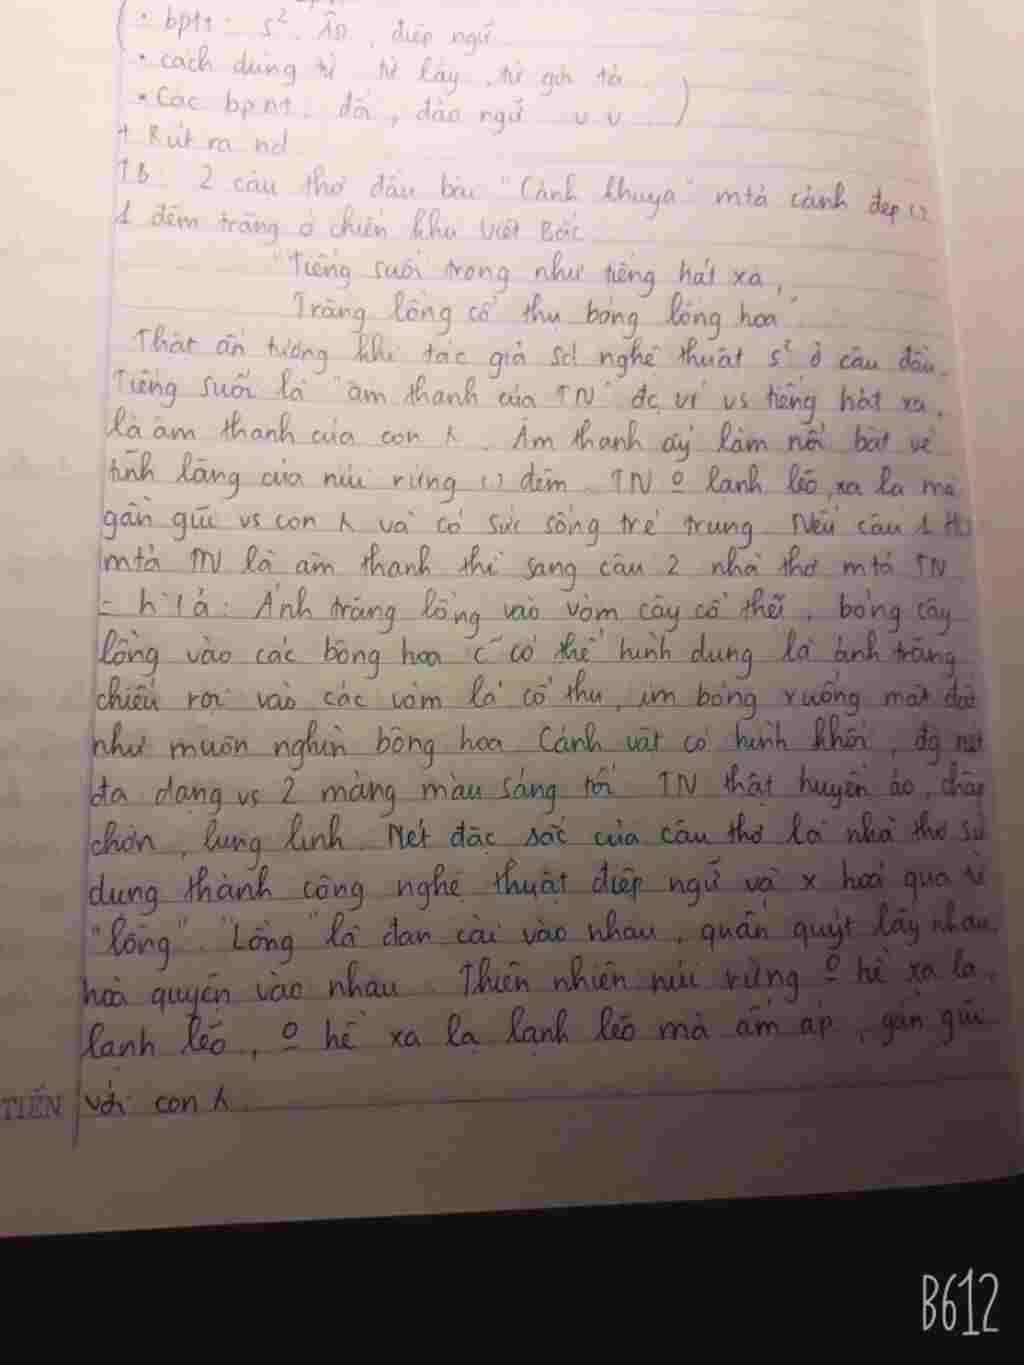 • bptt: s², ÂD, điệp ngữ
• cách dùng từ từ láy, từ gợi tả
• Các bpnt: đối, đảo ngữ v v )
+ Rút ra nd
TB: 2 câu thơ đầu bài "Cảnh khuya" mtả cảnh đẹp ()
1 đêm trăng ở chiến khu Việt Bắc
"Tiếng suối trong như tiếng hát xa,
Trăng lồng cổ thụ bóng lồng hoa"
Thật ấn tượng khi tác giả sd nghệ thuật s² ở câu đầu.
Tiếng suối là "âm thanh của TN" đc ví vs tiếng hát xa,
là âm thanh của con . Âm thanh ấy làm nổi bật vẻ
tĩnh lặng của núi rừng () đêm. TN o lạnh lẽo, xa lạ mà
gần gũi vs con và có sức sống trẻ trung. Nếu câu 1
mtả TN là âm thanh thì sang câu 2 nhà thơ mtả TN
= h'/ả: Ánh trăng lồng vào vòm cây cổ thụ, bóng cây
lồng vào các bông hoa có thể hình dung là ánh trăng
chiếu rọi vào các vòm lá cổ thụ, in bóng xuống mặt đất
như muôn nghìn bông hoa. Cảnh vật có hình khối, đg nét
đa dạng vs 2 mảng màu sáng tối. TN thật huyền ảo, chập
chờn, lung linh. Nét đặc sắc của câu thơ là nhà thơ sử
dụng thành công nghệ thuật điệp ngữ và x hoá qua từ
"lồng". "Lồng" là đan cài vào nhau, quấn quýt lấy nhau,
hoà quyện vào nhau. Thiên nhiên núi rừng o hề xa lạ,
lạnh lẽo, o hề xa lạ lạnh lẽo mà ấm áp, gần gũi
TIẾN với con
B612